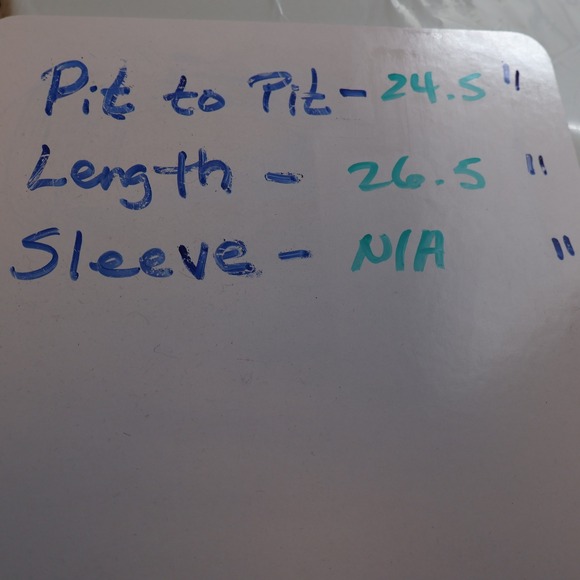 Pit to Pit - 24.5"
Length - 26.5"
Sleeve - N/A "